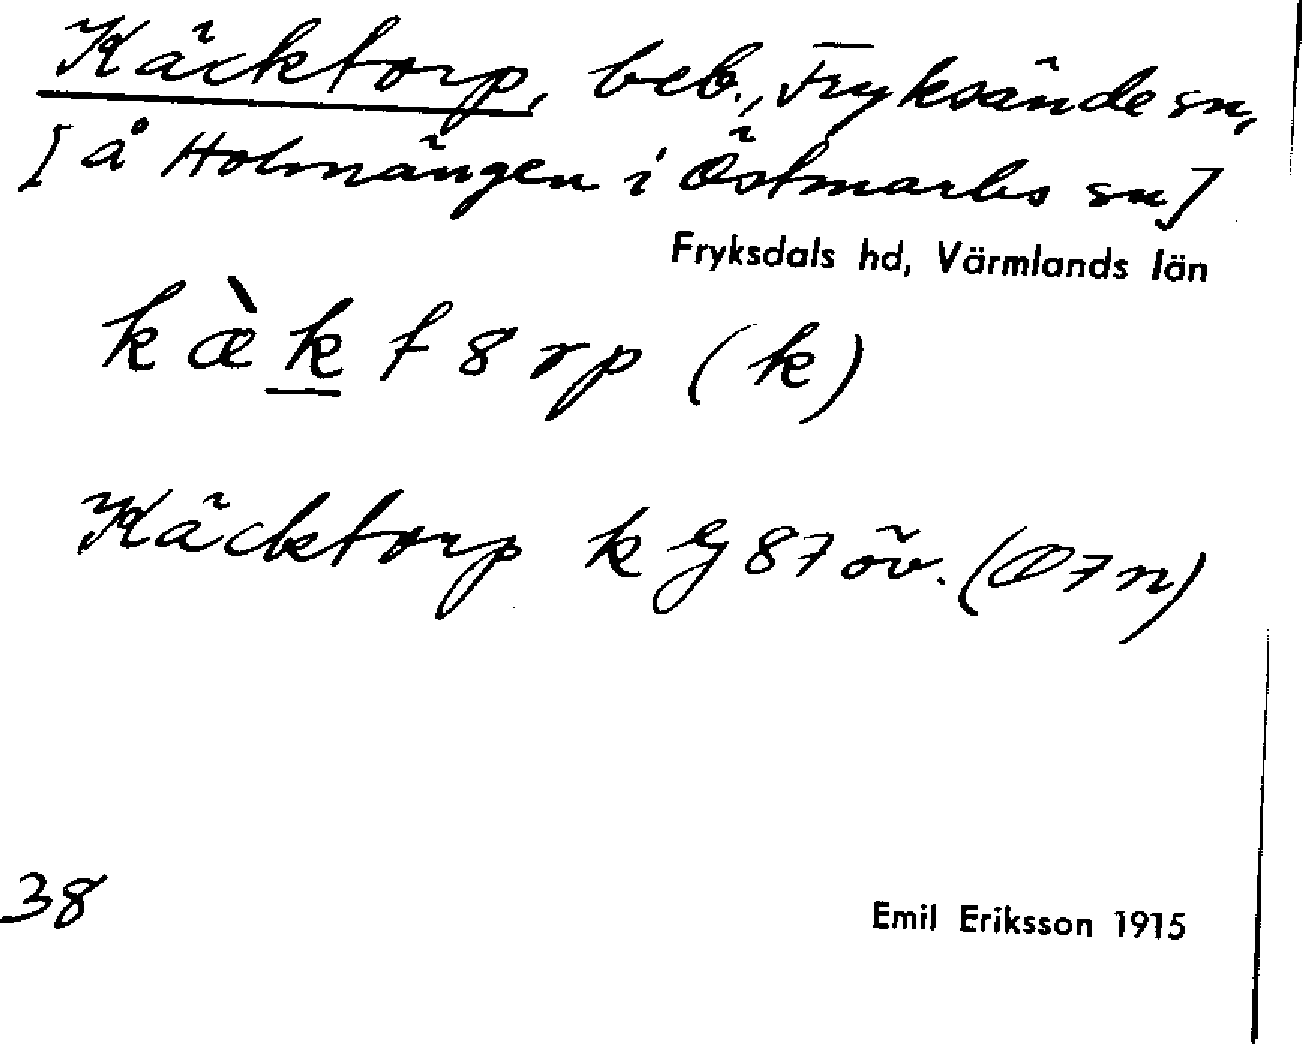 Käcktorp, beb., Fryksände sn,
[å Holmängen i Östmarks sn]
Fryksdals hd, Värmlands län
kæ̀k t8rp (k)
Käcktorp kg 87 öv. (Ø7n)
38
Emil Eriksson 1915